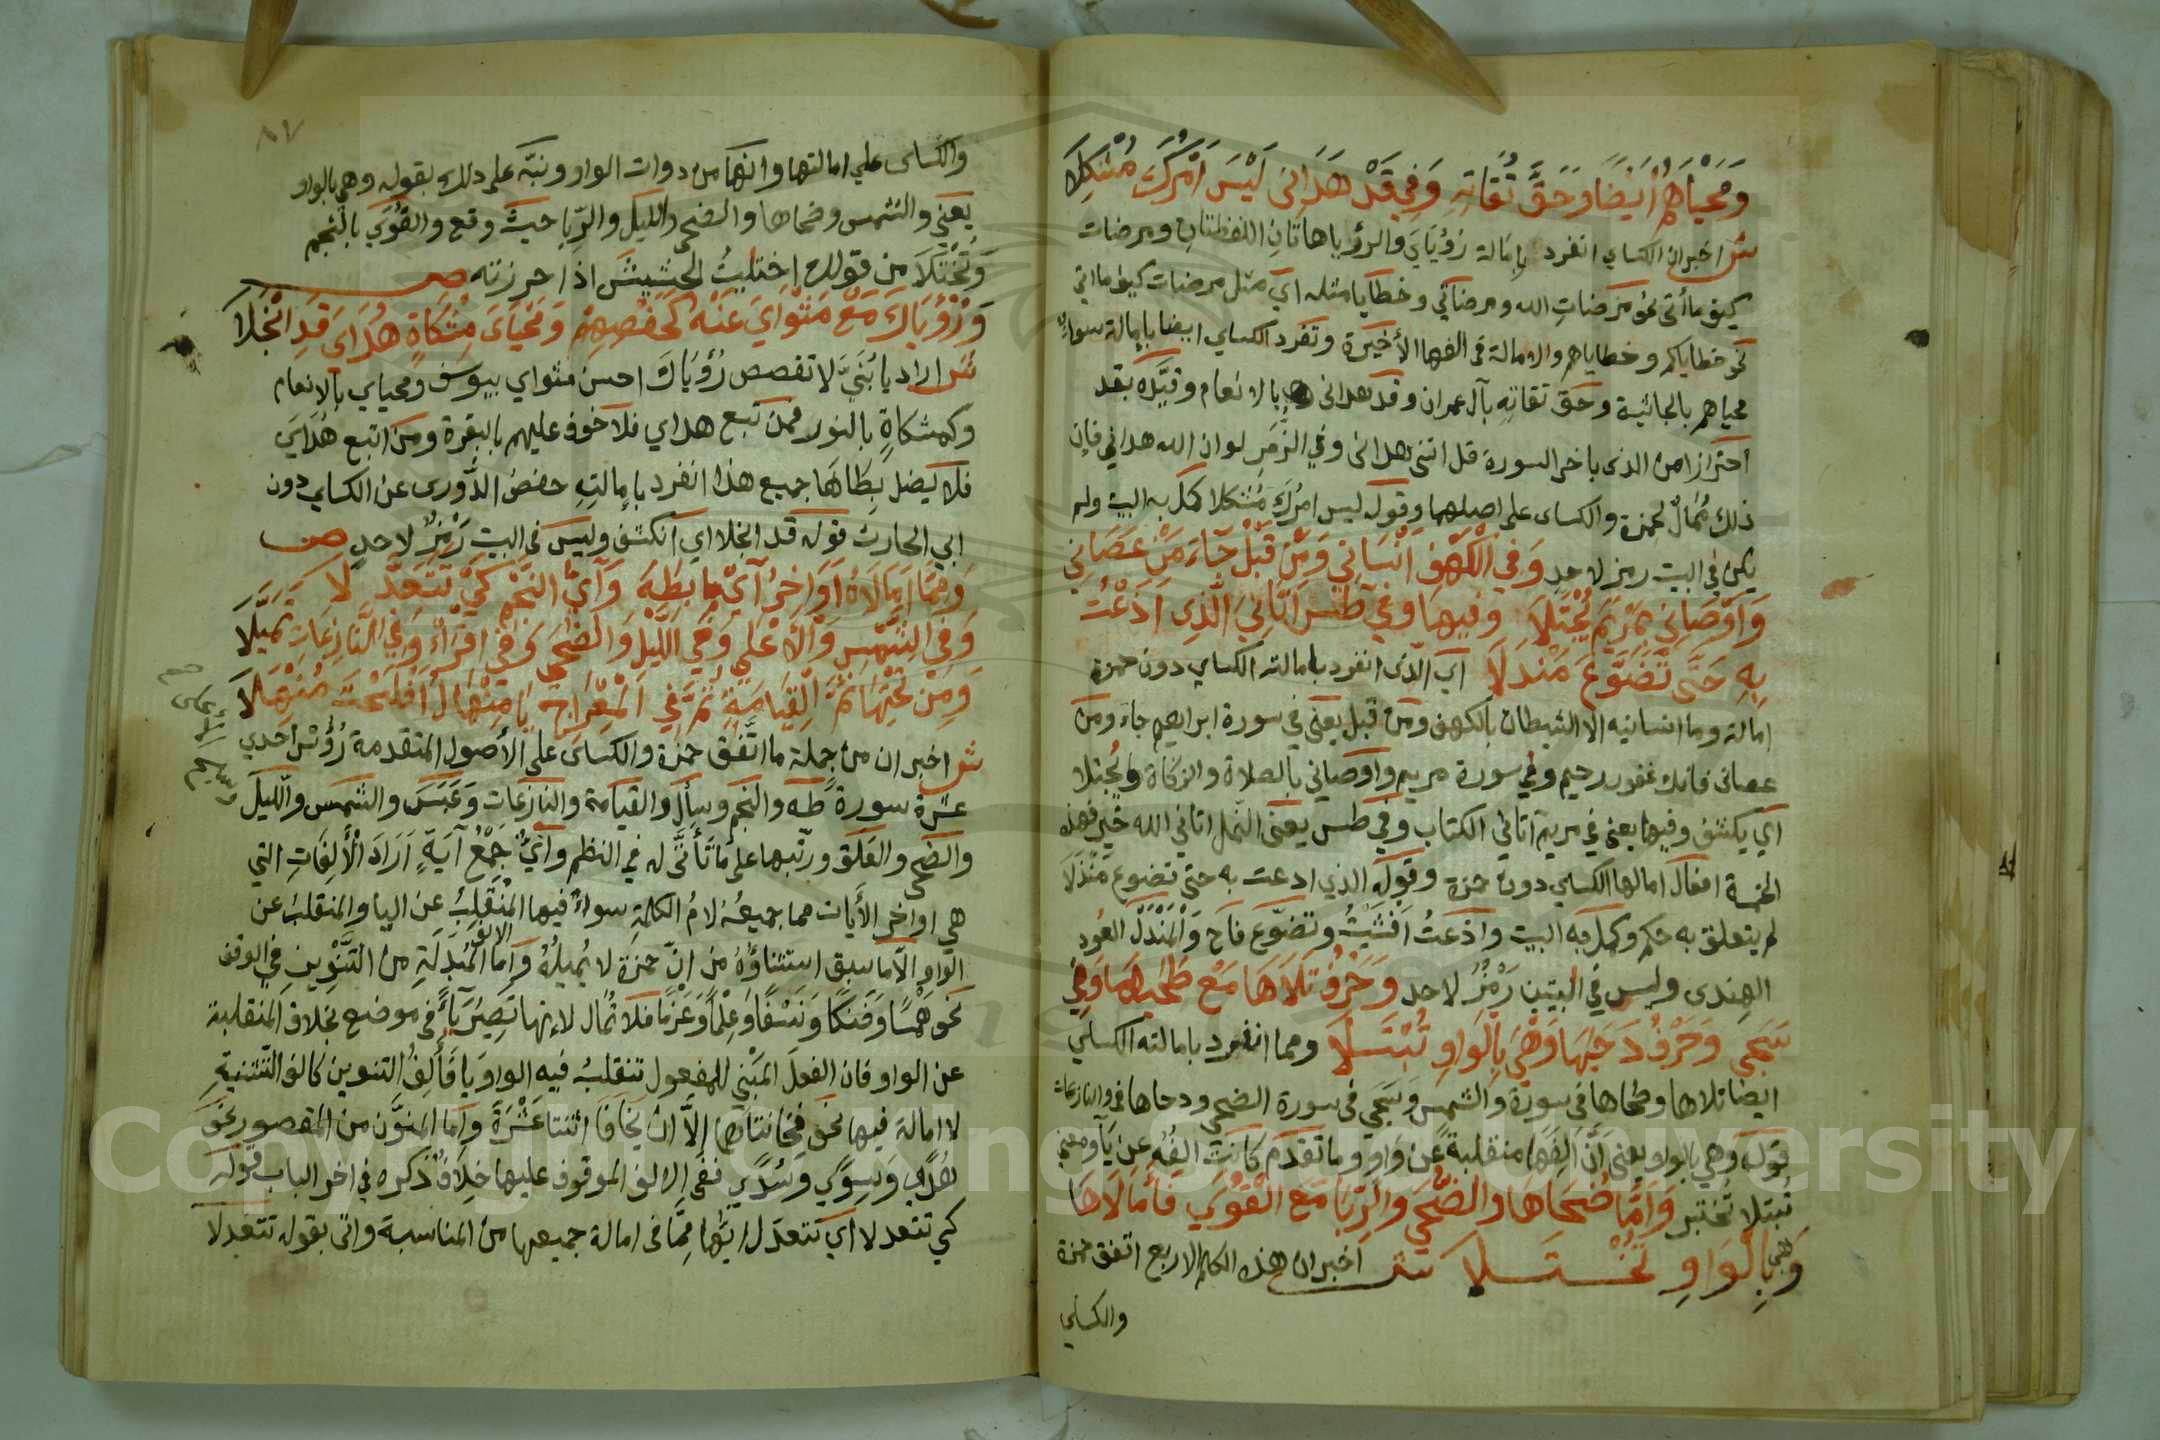 وَمَحْيَاهُمُ أَيْضًا وَحَقَّ تُقَاتِهِ وَفِي قَدْ هَدَانِي لَيْسَ أَمْرُكَ مُشْكِلَا
ش اخبر ان الكساي انفرد بامالة رؤياي والرؤيا هاتان اللفظتان ومرضات
كيف ما أتى نحو مرضات الله ومرضاتي وخطايا مثله اي مثل مرضات كيف ما اتى
نحو خطاياكم وخطاياهم والامالة في الفها الأخيرة وتفرد الكساي ايضا بامالة سواءً
محياهم بالجاثية وحق تقاته بآل عمران وقد هداني بالانعام وقيّده بقد
احترازا من الذي باخر السورة قل انني هداني وفي الزمر لو ان الله هداني فان
ذلك مُمالٌ لحمزة والكساى على اصلهما وقوله ليس امرك مشكلا كمل به البيت ولم
يكن في البيت رمز لاحد وَفِي الْكَهْفِ أَنْسَانِي وَمِنْ قَبْلُ جَاءَ مَنْ عَصَانِي
وَأَوْصَانِي بِمَرْيَمَ يُجْتَلَا وفيها وفي طس آتَانِيَ الَّذِي أَذَعْتُ
بِهِ حَتَّى تَضَوَّعَ مَنْدَلَا اي الذى انفرد بامالته الكساي دون حمزة
امالة وما انسانيه الا الشيطان بالكهف ومن قبل يعني في سورة ابراهيم جاء ومن
عصاني فانك غفور رحيم وفي سورة مريم واوصاني بالصلاة والزكاة ويجتلا
اي يكشف وفيها يعني في مريم آتاني الكتاب وفي طس يعني النمل اتاني الله خير فهذه
الخمسة افعال امالها الكساي دون حمزة وقوله الذي اذعت به حتى تضوع مندلا
لم يتعلق به حكم وكمل به البيت واذعت افشيت وتضوّع فاح والمندل العود
الهندى وليس في البيتين رَمْزٌ لاحد وَحَرْفُ تَلَاهَا مَعْ طَحَاهَا وَفِي
سَجَى وَحَرْفُ دَحَاهَا وَهْيَ بِالْوَاوِ تُبْتَلَا ومما انفرد بامالته الكساي
ايضا تلاها وطحاها في سورة والشمس وسجى في سورة الضحى ودحاها في والنازعات
قوله وهي بالواو يعني أَنَّ ألفها منقلبة عن واو وما تقدم كانت الفه عن يآء ومعنى
تبتلا تختبر وَأَمَّا ضُحَاهَا والضُّحَى وَالرِّبَا مَعَ الْقُوَى فَأَمَالَاهَا
وهي بِالْوَاوِ تُخْتَلَا ش اخبر ان هذه الكلم الاربع اتفق حمزة
والكساي
٨٧
والكساى على امالتها وانها من دوات الواو ونبّه على ذلك بقوله وهي بالواو
يعني والشمس وضحاها والضحى والليل والرّبا حيث وقع والقُوَى بالنجم
وَتُخْتَلَا من قولك اختليتُ الحشيش اذا احرزته ص
وَرُؤْيَاكَ مَعْ مَثْوَايَ عَنْهُ لِحَفْصِهِمْ وَمَحْيَايَ مِشْكَاةٍ هُدَايَ قَدِ انْجَلَا
ش اراد يا بُنَيَّ لا تقصص رُؤْيَاكَ احسن مثواي بيوسف ومحياي بالانعام
وكمشكاةٍ بالنور فمن تبع هداي فلا خوف عليهم بالبقرة ومن اتبع هداي
فلا يضل بطاها جميع هذا انفرد بامالته حفص الدّورى عن الكساي دون
ابي الحارث قوله قد انجلا اي انكشف وليس في البيت رَمْزٌ لاحد ص
وَمِمَّا أَمَالَاهُ أَوَاخِرُ آيِ مَا بِطَهَ وَآيِ النَّجْمِ كَيْ تَتَعَدَّلَا
وَفِي الشَّمْسِ وَالْأَعْلَى وَفِي اللَّيْلِ وَالضُّحَى وَفِي اقْرَأْ وَفِي النَّازِعَاتِ تَمَيَّلَا
وَمِنْ تَحْتِهَا ثُمَّ الْقِيَامَةِ ثُمَّ فِي الْمَعَارِجِ يَا مِنْهَالُ أَفْلَحْتَ مُنْهِلَا
ش اخبر ان من جملة ما اتفق حمزة والكساى على الأصول المتقدمة رُؤُس احدي
عشرة سورة طه والنجم وسأل والقيامة والنازعات وعبس والشمس والليل
والضحى والعلق ورتبها على ما تأتّى له في النظم وآيٌ جَمْعُ آيَةٍ أراد الألفات التي
هي اواخر الأيات مما جميعه لامُ الكلمة سواءً فيها المنقلب عن اليا والمنقلب عن
الواو الّا ما سبق استثناؤه من انّ حمزة لا يُميلُهُ وأما الالف المبدلة من التنوين في الوقف
نحو هَمْسًا وضنكًا ونسفًا وعلمًا وعزمًا فلا تُمال لانها تصيرُ يآءً في موضع بخلاف المنقلبة
عن الواو فان الفعل المبني للمفعول تنقلب فيه الواو يا فألف التنوين كالف التثنية
لا امالة فيها نحو فخانتاهما إلَّا ان يخافا اثنتا عشرة وأما المنوَّن من المقصور نحو
هُدًى وَسِوًى وسُدًى ففي الالف الموقوف عليها خلافٌ ذكره في اخر الباب قوله
كي تتعدلا اي تتعدل ايّها مِمَّا في امالة جميعها من المناسبة واتى بقوله تتعدلا
Copyright © King Saud University